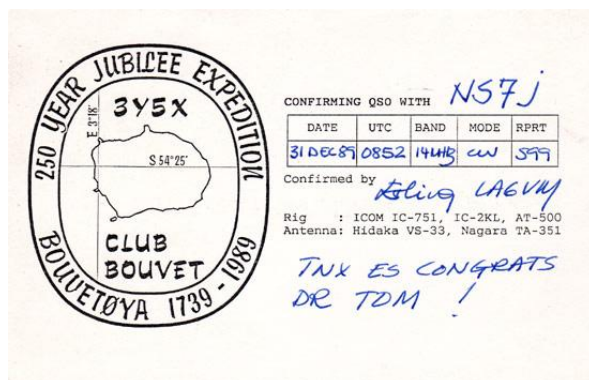 250 YEAR JUBILEE EXPEDITION
3Y5X
E 3°18'
S 54°25'
CLUB
BOUVET
BOUVETØYA 1739 - 1989
CONFIRMING QSO WITH NS7J
DATE UTC BAND MODE RPRT
31 DEC 89 0852 14MHz CW 599
Confirmed by LA6VM
Rig : ICOM IC-751, IC-2KL, AT-500
Antenna: Hidaka VS-33, Nagara TA-351
TNX ES CONGRATS
DR TOM !